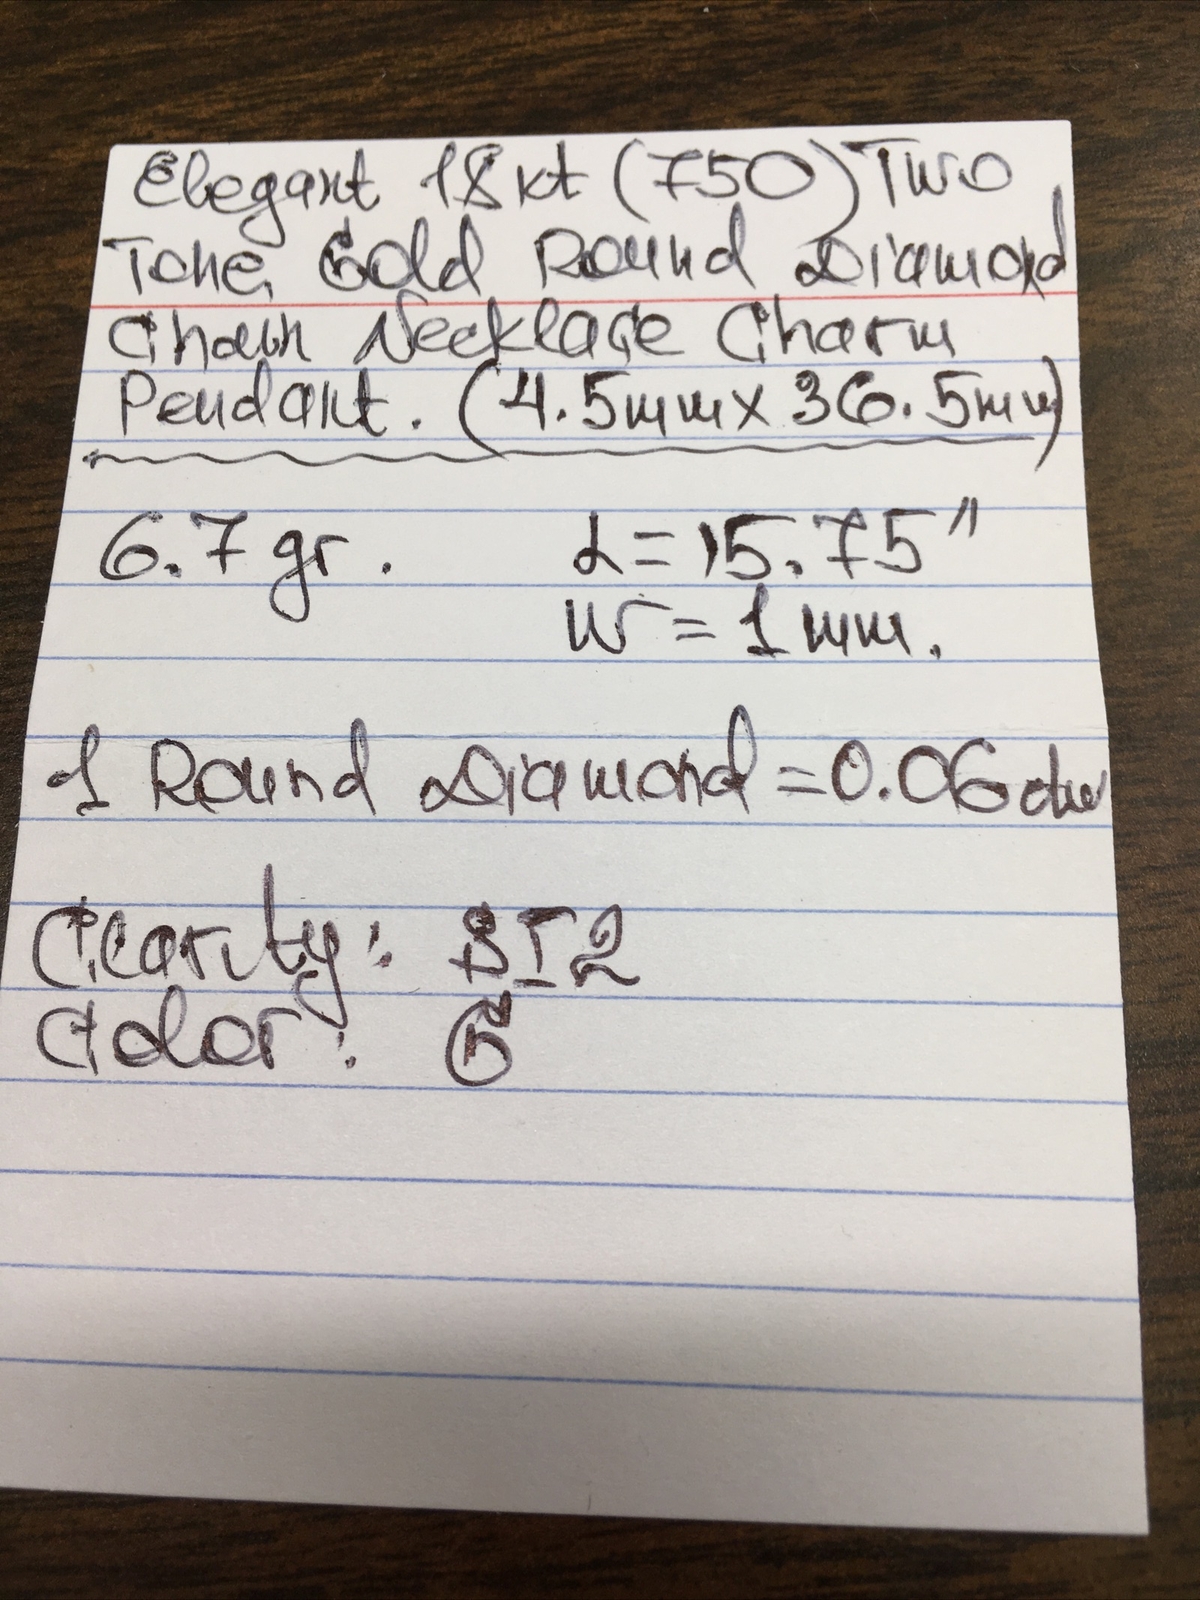 Elegant 18kt (750) Two
Tone Gold Round Diamond
Chain Necklace Charm
Pendant. (4.5mm x 36.5mm)
6.7 gr. L=15.75"
W=1mm.
1 Round Diamond=0.06dw
Clarity: SI2
Color: G